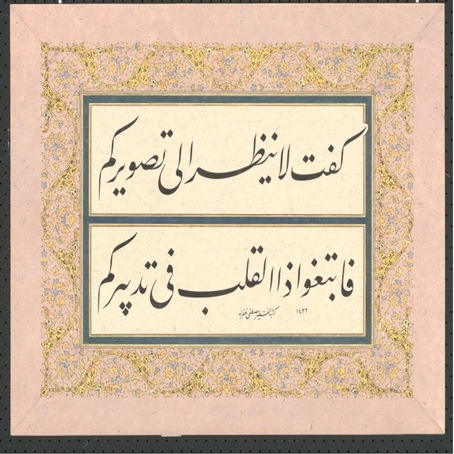 كفت لا ينظر الى تصويركم
فابتغوا ذا القلب فى تدبيركم